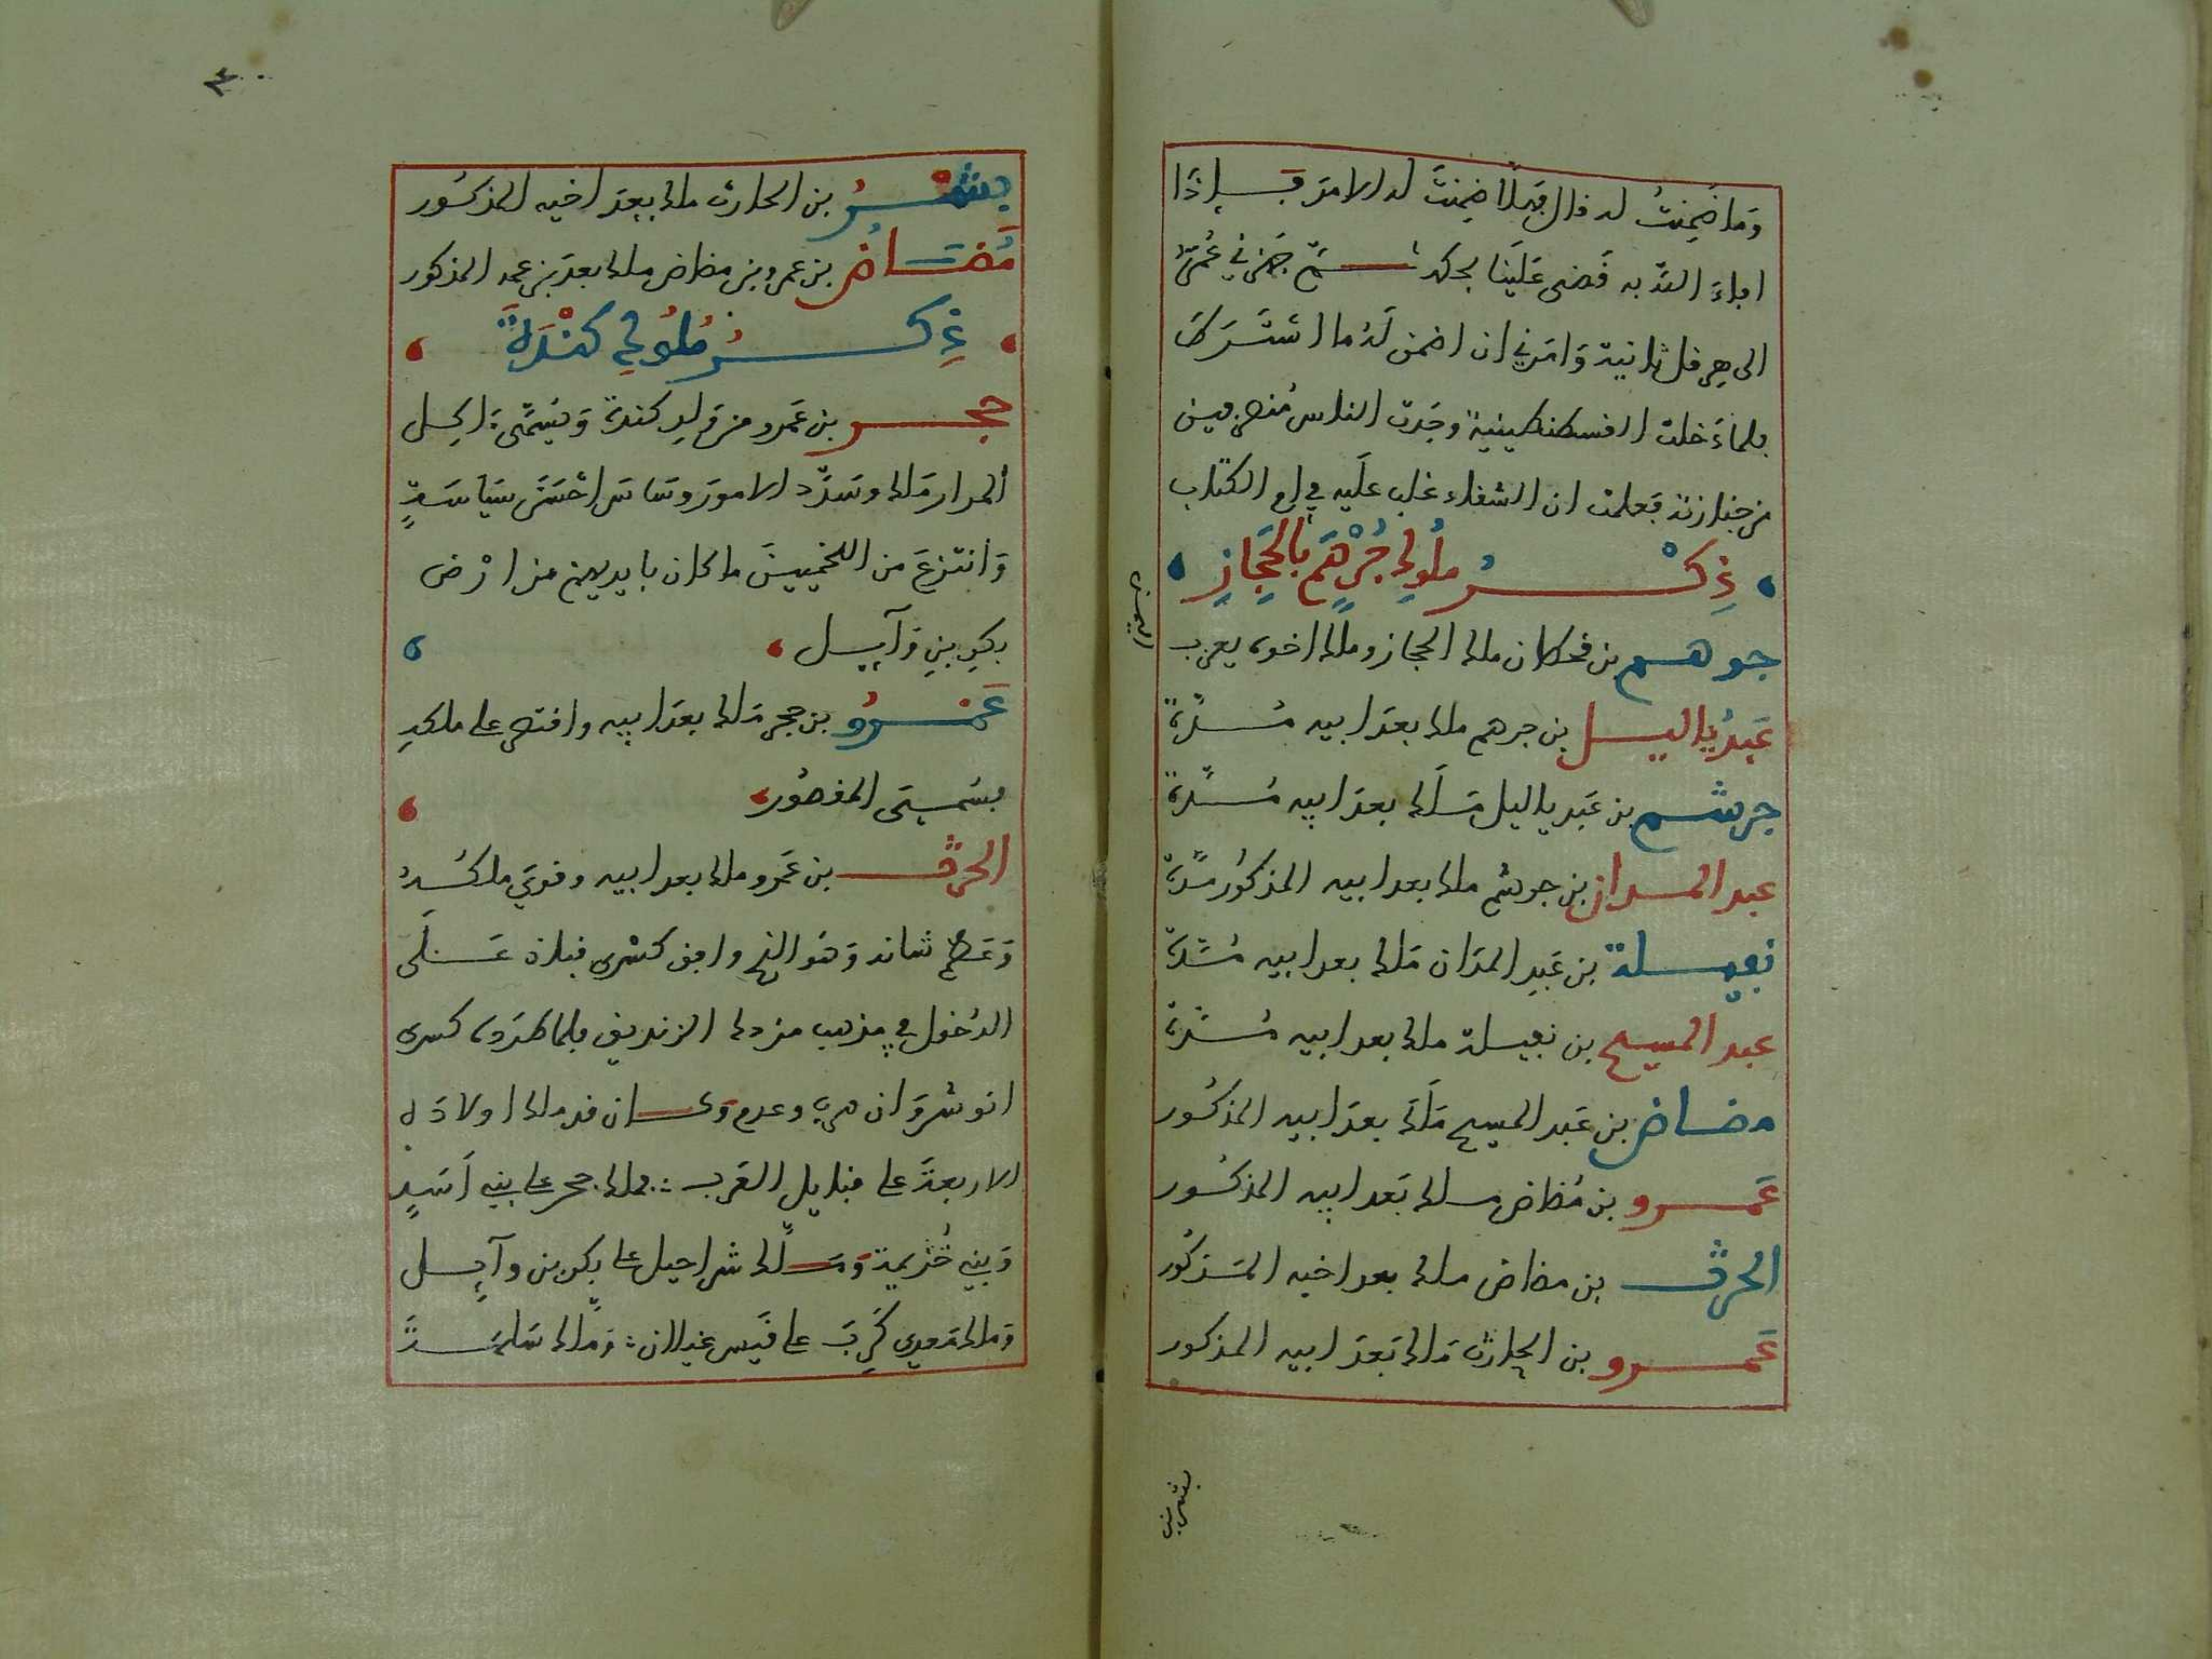 وَما ضَمِنتُ له قال فهلا ضمِنتَ له الامر قبل اذا
افاء الله به فقضى علينا بحكمه ثم جهزني عُمَر
الى هرقل ثانية وَامَرني ان اضمن لَهُ ما اشتَرَط
فلما دَخلت القسطنطينية وجَدت الناس مُنصرفين
من جنازته فعلمت ان الشقاء غلب علَيه في ام الكتاب
ذِكْرُ ملُوكِ جُرْهَم بالحَِجازِ
جرهم بن قحطان ملك الحجاز وملك اخوه يعرب
اليمن
عَبدُ ياليل بن جرهم ملك بعدَ ابيه مُدّة
جرشم بن عَبد ياليل مَلَك بعدَ ابيه مُدّة
عبد المدان بن جرشم ملك بعد ابيه المذكُور مدّة
نفيلة بن عَبدِ المدَان مَلك بعد ابيه مُدّة
عبد المسيح بن نفيلة ملك بعد ابيه مُدّة
مضاض بن عَبد المسيح مَلَكَ بعدَ ابيه المذكُور
عَمرو بن مُضاض ملك بَعد ابيه المذكُور
الحرث بن مضاض ملك بعد اخيه المَذكُور
عَمرو بن الحارث مَلك بَعدَ ابيه المذكور
بشر بن
٤٠
بشرُ بن الحارث ملك بعدَ اخيه المذكُور
مُضَاضُ بن عمرو بن مضاض ملك بعدَ بن عمه المذكور
ذِكرُ مُلُوكِ كنْدَةَ
حجر بن عَمرو من وَلدِ كندة وَيُسَمَّى اكِل
المرار مَلك وسَدَّد الامورَ وسَاسَ احْسَن سيَاسَةٍ
وَانتزعَ من اللخميينَ ما كان بايديهم من ارْض
بكرِ بنِ وَآيل
عَمْرُو بن حجر مَلك بعدَ ابيه واقتصر على ملكهِ
فسُمي المقصُور
الحرث بن عَمرو ملك بعد ابيه وقوِيَ ملكُهُ
وَعَظم شانه وَهُو الذي وافق كسْرى قباذ عَلَى
الدُخول في مذهب مزدك الزنديق فلما طرَده كسرى
انوشرَوَان هرب وعدم وَكان قد ملك اولادَه
الاربعة على قبايل العَرب فملك حجر على بني اَسَدٍ
وَبني خُزيمة وَمَلّك شراحيل على بكر بن وآيل
وَملك مَعدي كَرِبَ على قَيس غيلان وَمَلّك سَلمَةَ